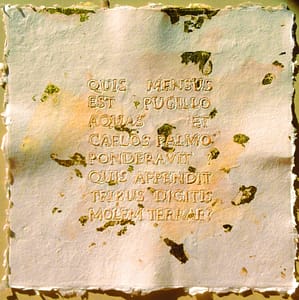 QUIS MENSUS
EST PUGILLO
AQUAS ET
CAELOS PALMO
PONDERAVIT ?
QUIS APPENDIT
TRIBUS DIGITIS
MOLEM TERRAE?